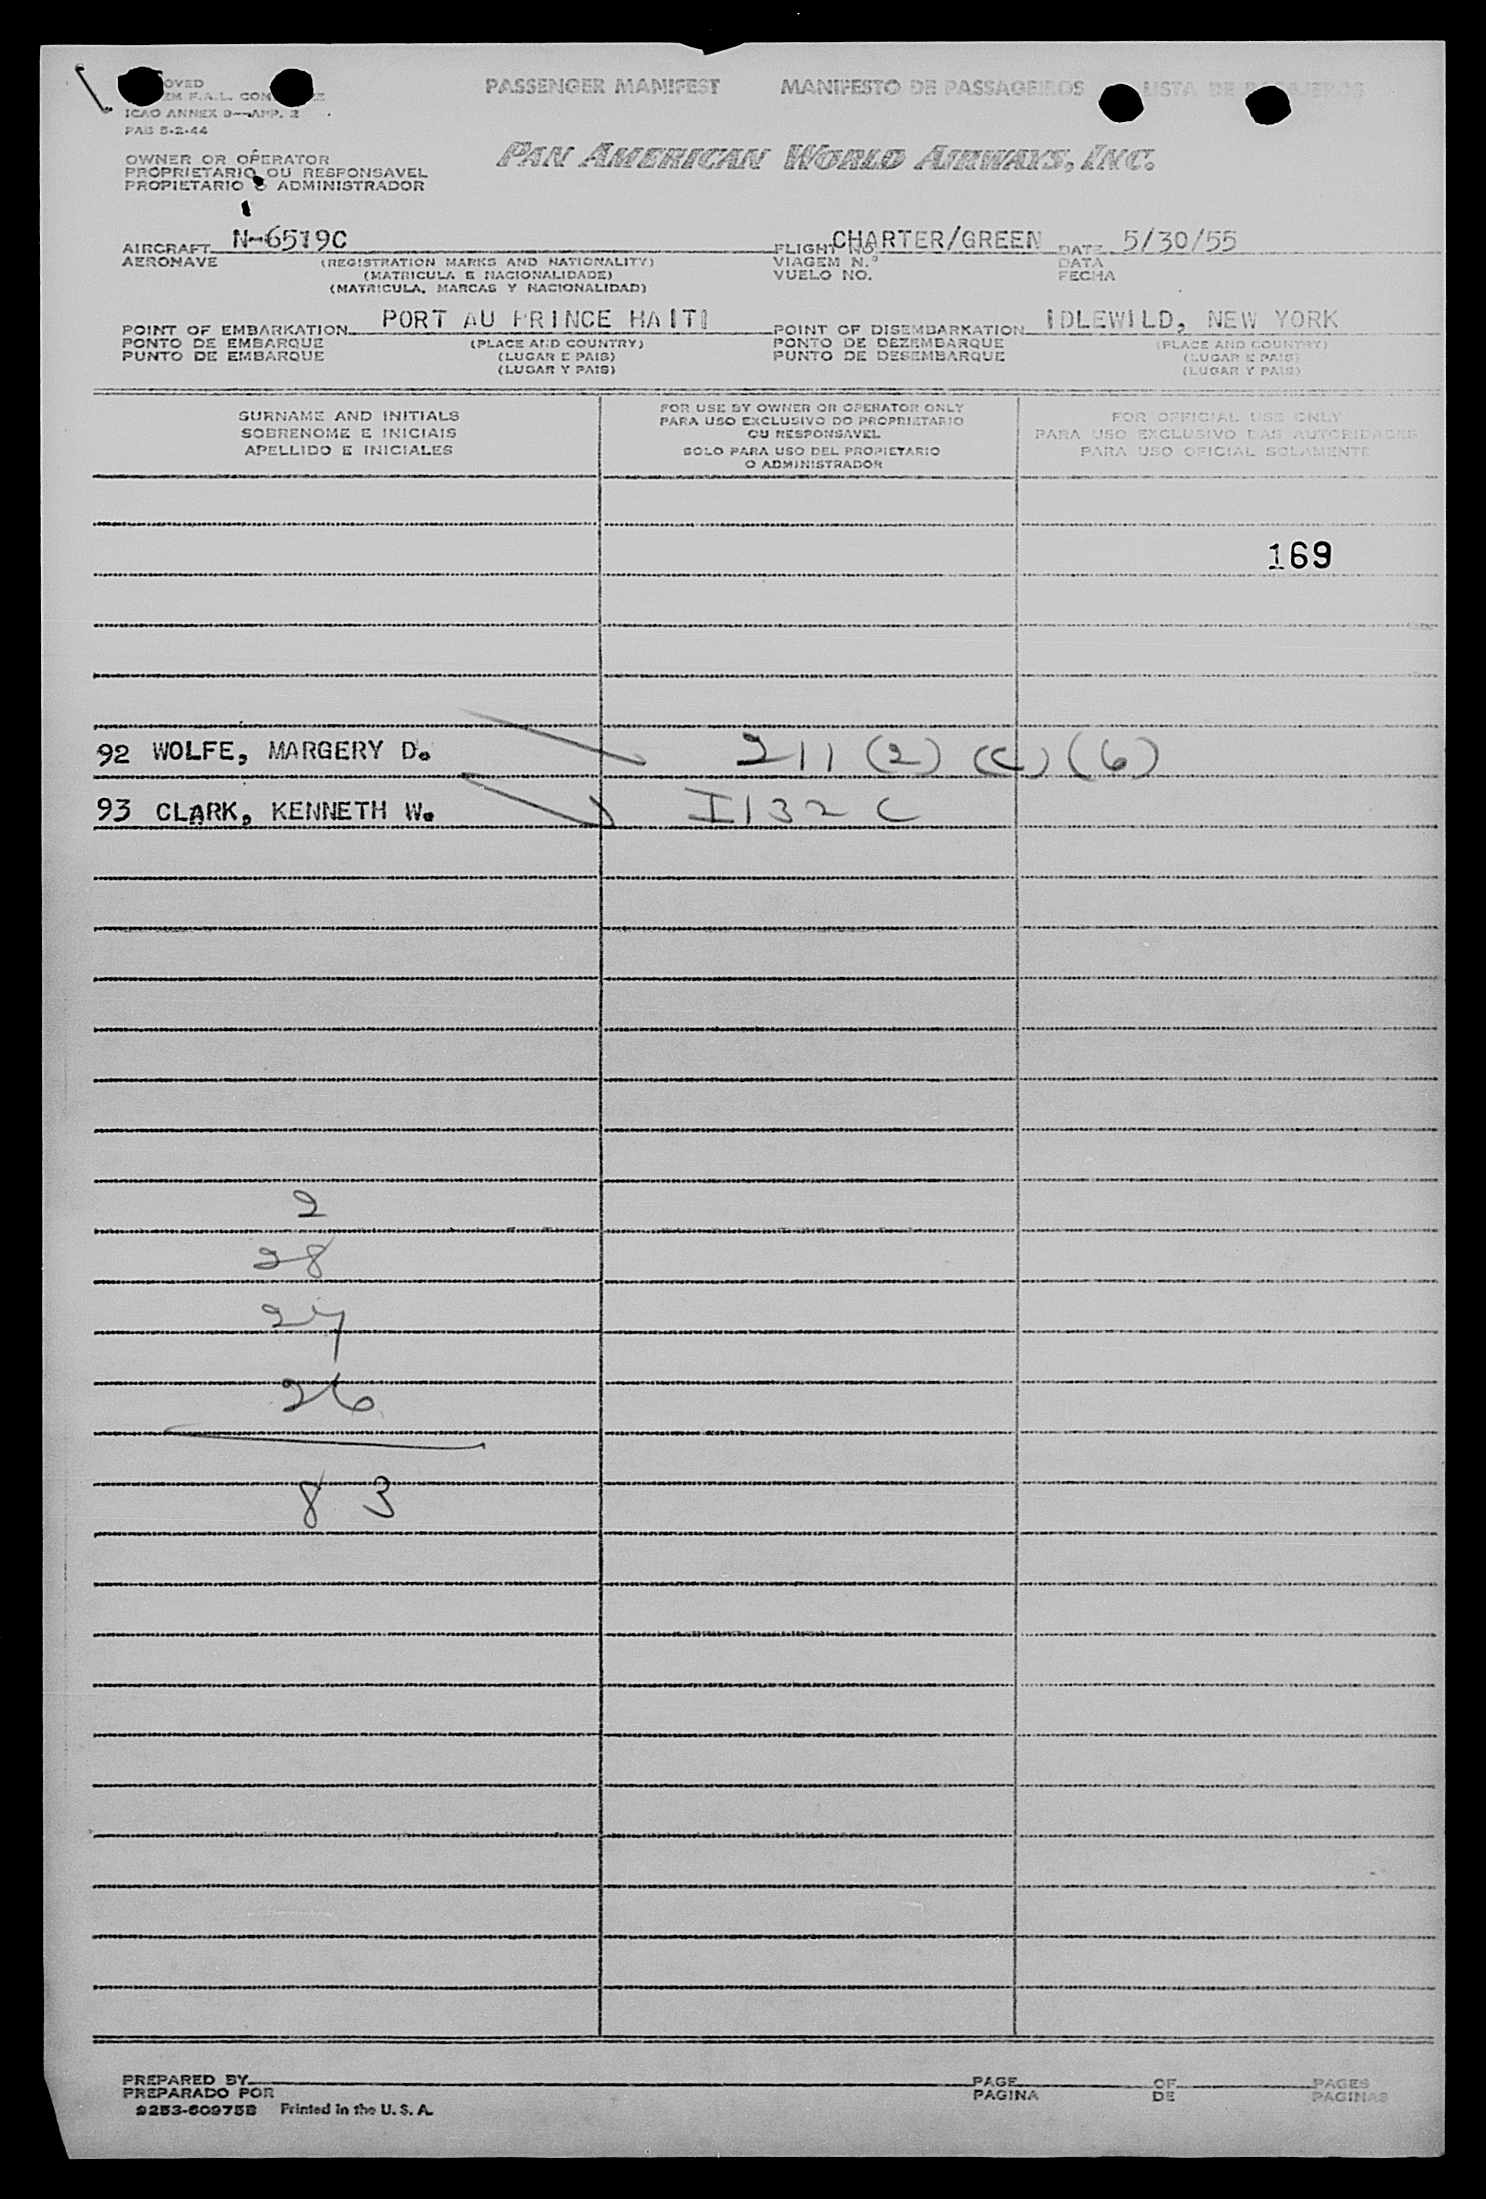 PASSENGER MANIFEST MANIFESTO DE PASSAGEIROS LISTA DE PASAJEROS
ICAO ANNEX 9—APP. 2
PAB 5-2-44
OWNER OR OPERATOR
PROPRIETARIO OU RESPONSAVEL
PROPIETARIO O ADMINISTRADOR
PAN AMERICAN WORLD AIRWAYS, INC.
AIRCRAFT N-6519C FLIGHT NO. CHARTER/GREEN DATE 5/30/55
AERONAVE (REGISTRATION MARKS AND NATIONALITY) VIAGEM N.º DATA
(MATRICULA E NACIONALIDADE) VUELO NO. FECHA
(MATRICULA, MARCAS Y NACIONALIDAD)
POINT OF EMBARKATION PORT AU PRINCE HAITI POINT OF DISEMBARKATION IDLEWILD, NEW YORK
PONTO DE EMBARQUE (PLACE AND COUNTRY) PONTO DE DEZEMBARQUE (PLACE AND COUNTRY)
PUNTO DE EMBARQUE (LUGAR E PAIS) PUNTO DE DESEMBARQUE (LUGAR E PAIS)
(LUGAR Y PAIS) (LUGAR Y PAIS)
SURNAME AND INITIALS
SOBRENOME E INICIAIS
APELLIDO E INICIALES
FOR USE BY OWNER OR OPERATOR ONLY
PARA USO EXCLUSIVO DO PROPRIETARIO
OU RESPONSAVEL
SOLO PARA USO DEL PROPIETARIO
O ADMINISTRADOR
FOR OFFICIAL USE ONLY
PARA USO EXCLUSIVO DAS AUTORIDADES
PARA USO OFICIAL SOLAMENTE
169
92 WOLFE, MARGERY D. 211 (2) (c) (6)
93 CLARK, KENNETH W. I132 C
2
28
27
26
83
PREPARED BY PAGE OF PAGES
PREPARADO POR PAGINA DE PAGINAS
9253-60975B Printed in the U. S. A.